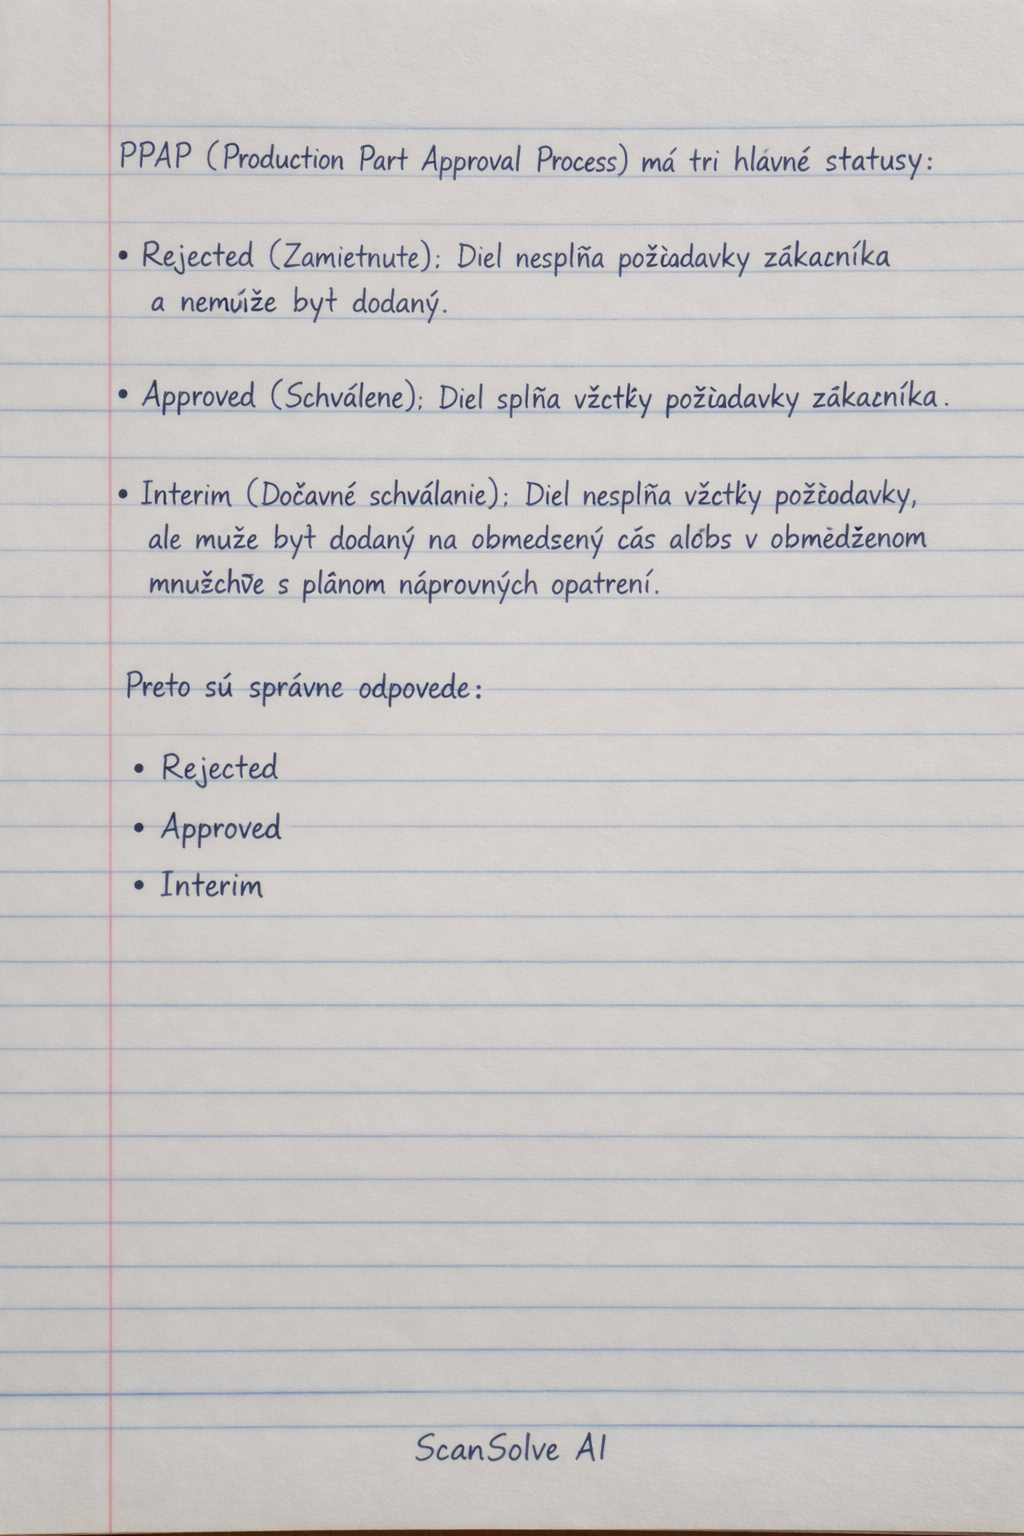 PPAP (Production Part Approval Process) má tri hlavné statusy:
• Rejected (Zamietnute): Diel nesplña požiadavky zákacníka
a nemúiže byť dodaný.
• Approved (Schválene): Diel splña vžctky požiadavky zákacníka.
• Interim (Dočavné schválanie): Diel nesplña vžctky požčodavky,
ale muže byť dodaný na obmedsený cás alobs v obmèdženom
mnužchve s plânom náprovných opatrení.
Preto sú správne odpovede:
• Rejected
• Approved
• Interim
ScanSolve AI